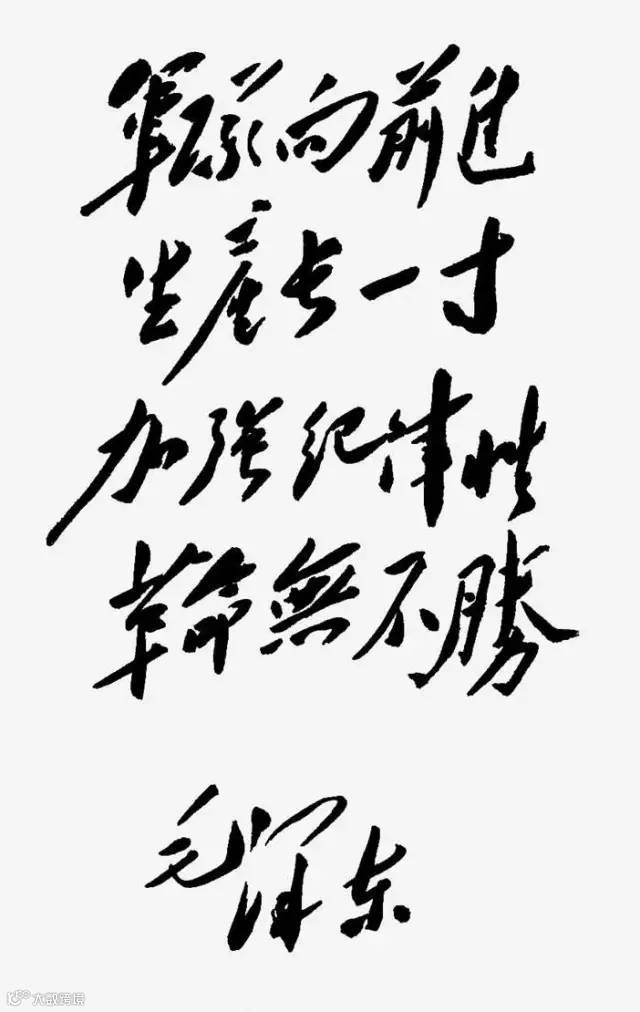 軍隊向前進
生產長一寸
加強紀律性
革命無不勝
毛泽东
大数跨境